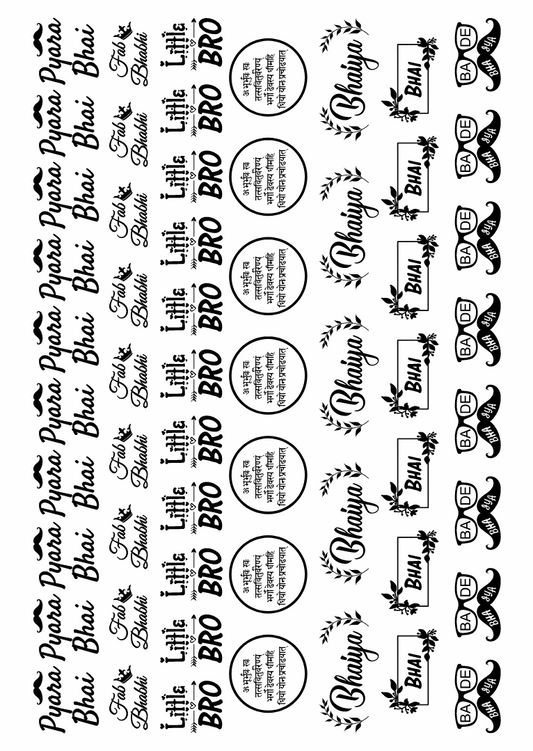 Pyara
Bhai
Pyara
Bhai
Pyara
Bhai
Pyara
Bhai
Pyara
Bhai
Pyara
Bhai
Pyara
Bhai
Pyara
Bhai
Pyara
Bhai
Pyara
Bhai
Fab
Bhabhi
Fab
Bhabhi
Fab
Bhabhi
Fab
Bhabhi
Fab
Bhabhi
Fab
Bhabhi
Fab
Bhabhi
Fab
Bhabhi
Fab
Bhabhi
Little
BRO
Little
BRO
Little
BRO
Little
BRO
Little
BRO
Little
BRO
Little
BRO
Little
BRO
Little
BRO
Little
BRO
Little
BRO
ॐ भूर्भुव स्वः
तत्सवितुर्वरेण्यं
भर्गो देवस्य धीमहि
धियो योन प्रचोदयात्
ॐ भूर्भुव स्वः
तत्सवितुर्वरेण्यं
भर्गो देवस्य धीमहि
धियो योन प्रचोदयात्
ॐ भूर्भुव स्वः
तत्सवितुर्वरेण्यं
भर्गो देवस्य धीमहि
धियो योन प्रचोदयात्
ॐ भूर्भुव स्वः
तत्सवितुर्वरेण्यं
भर्गो देवस्य धीमहि
धियो योन प्रचोदयात्
ॐ भूर्भुव स्वः
तत्सवितुर्वरेण्यं
भर्गो देवस्य धीमहि
धियो योन प्रचोदयात्
ॐ भूर्भुव स्वः
तत्सवितुर्वरेण्यं
भर्गो देवस्य धीमहि
धियो योन प्रचोदयात्
ॐ भूर्भुव स्वः
तत्सवितुर्वरेण्यं
भर्गो देवस्य धीमहि
धियो योन प्रचोदयात्
Bhaiya
Bhaiya
Bhaiya
Bhaiya
Bhaiya
BHAI
BHAI
BHAI
BHAI
BHAI
BHAI
BHAI
BA DE
BHA IYA
BA DE
BHA IYA
BA DE
BHA IYA
BA DE
BHA IYA
BA DE
BHA IYA
BA DE
BHA IYA
BA DE
BHA IYA
BA DE
BHA IYA